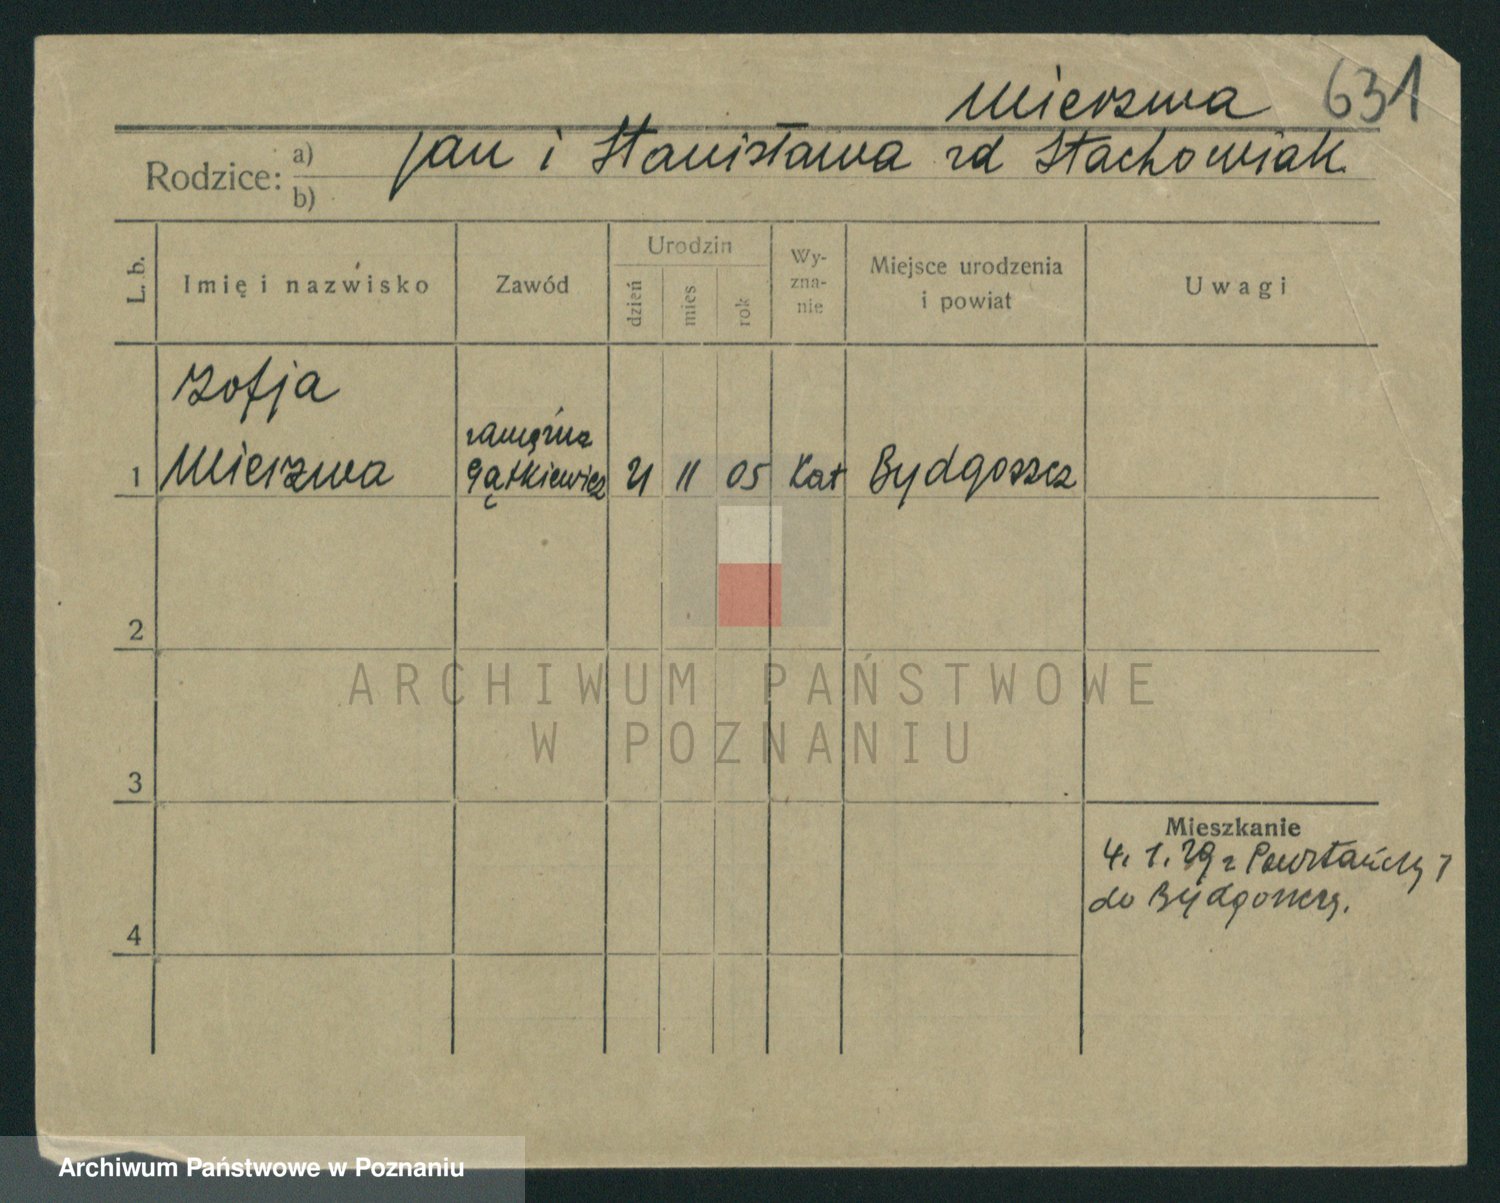 Mierzwa 631
Rodzice: a) b) Jan i Stanisława zd Stachowiak
L. b.
Imię i nazwisko
Zawód
Urodzin
dzień
mies
rok
Wy-
zna-
nie
Miejsce urodzenia
i powiat
Uwagi
Zofja
zamężna
1 Mierzwa 21 11 05 Kat Bydgoszcz
2
3
4
Mieszkanie
4. 1. 29 z
do Bydgoszczy.
ARCHIWUM PAŃSTWOWE
W POZNANIU
Archiwum Państwowe w Poznaniu